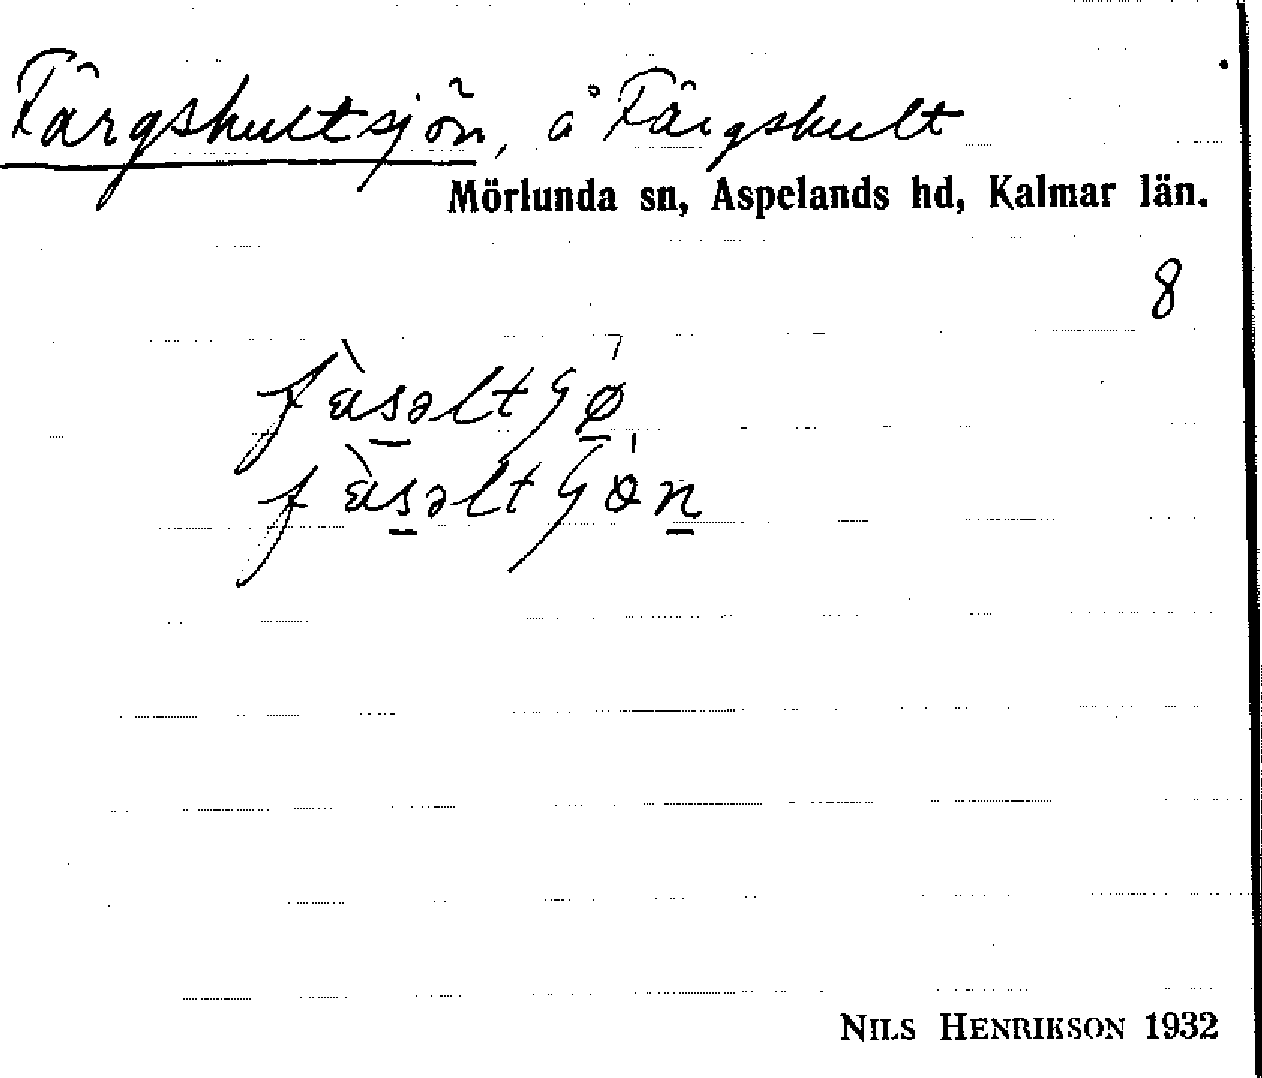 Färgshultsjön, å Färgshult
Mörlunda sn, Aspelands hd, Kalmar län.
8
NILS HENRIKSON 1932